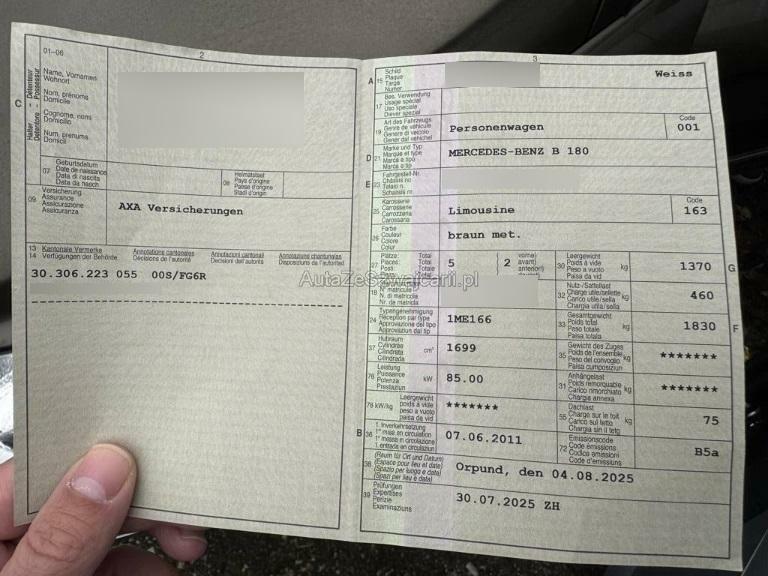 01-06
2
Detenteur
Possessur
Halter
Detentore
C
Name, Vornamen
Wohnort
Nom, prénoms
Domicile
Cognome, nomi
Domicilio
Num, prenums
Domicil
07
Geburtsdatum
Date de naissance
Data di nascita
Data da nasch.
08
Heimatstaat
Pays d'origine
Paese d'origine
Stadi d'origin
09
Versicherung
Assurance
Assicurazione
Assicuranza
AXA Versicherungen
13
14
Kantonale Vermerke
Verfügungen der Behörde
Annotations cantonales
Décisions de l'autorité
Annotazioni cantonali
Decisioni dell'autorità
Annotaziuns chantunalas
Disposiziuns da l'autoritad
30.306.223 055 00S/FG6R
AutaZeSzwajcarii.pl
3
A
15
Schild
Plaque
Targa
Numer
Weiss
17
Bes. Verwendung
Usage spécial
Uso speciale
Diever spezial
19
Art des Fahrzeugs
Genre de véhicule
Genere di veicolo
Gener dal vehichel
Personenwagen
Code
001
D
21
Marke und Typ
Marque et type
Marca e tipo
Marca e tip
MERCEDES-BENZ B 180
E
23
Fahrgestell-Nr.
Châssis no
Telaio n.
Schassis nr.
25
Karosserie
Carrosserie
Carrozzeria
Carossaria
Limousine
Code
163
26
Farbe
Couleur
Colore
Colur
braun met.
27
Plätze:
Places:
Posti:
Total
Total
Totale
5
2
vorne)
avant)
anteriori)
30
Leergewicht
Poids à vide
Peso a vuoto
Paisa vid
kg
1370
G
18
N° matricule
N. di matricola
Nr. da matricla
32
Nutz-/Sattellast
Charge utile/sellette
Carico utile/sella
Chargia utila/sella
kg
460
24
Typengenehmigung
Réception par type
Approvazione del tipo
Approvaziun dal tip
1ME166
33
Gesamtgewicht
Poids total
Peso totale
Paisa totala
kg
1830
F
37
Hubraum
Cylindrée
Cilindrata
Cilindrada
cm³
1699
35
Gewicht des Zuges
Poids de l'ensemble
Peso del convoglio
Paisa cumposiziun
kg
*******
76
Leistung
Puissance
Potenza
Prestaziun
kW
85.00
31
Anhängelast
Poids remorquable
Carico rimorchiato
Chargia annexa
kg
*******
78
kW/kg
Leergewicht
poids à vide
peso a vuoto
paisa da vid
*******
55
Dachlast
Charge sur le toit
Carico sul tetto
Chargia sin il tetg
kg
75
B
36
1. Inverkehrsetzung
1re mise en circulation
1a messa in circolazione
1. entrada en circulaziun
07.06.2011
72
Emissionscode
Code émissions
Codice emissioni
Code d'emissiuns
B5a
38
(Raum für Ort und Datum)
(Espace pour lieu et date)
(Spazio per luogo e data)
(Spazi per lieu e data)
Orpund, den 04.08.2025
39
Prüfungen
Expertises
Perizie
Examinaziuns
30.07.2025 ZH